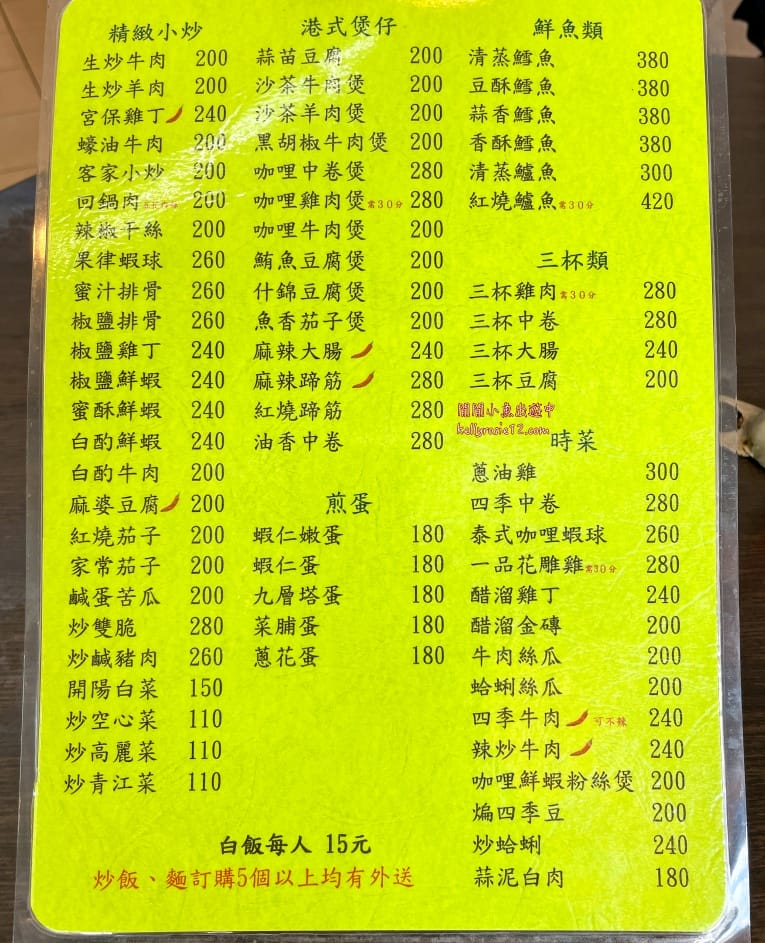 精緻小炒
生炒牛肉 200
生炒羊肉 200
宮保雞丁 240
蠔油牛肉 200
客家小炒 200
回鍋肉 200
辣椒干絲 200
果律蝦球 260
蜜汁排骨 260
椒鹽排骨 260
椒鹽雞丁 240
椒鹽鮮蝦 240
蜜酥鮮蝦 240
白酌鮮蝦 240
白酌牛肉 200
麻婆豆腐 200
紅燒茄子 200
家常茄子 200
鹹蛋苦瓜 200
炒雙脆 280
炒鹹豬肉 260
開陽白菜 150
炒空心菜 110
炒高麗菜 110
炒青江菜 110
港式煲仔
蒜苗豆腐 200
沙茶牛肉煲 200
沙茶羊肉煲 200
黑胡椒牛肉煲 200
咖哩中卷煲 280
咖哩雞肉煲需30分 280
咖哩牛肉煲 200
鮪魚豆腐煲 200
什錦豆腐煲 200
魚香茄子煲 200
麻辣大腸 240
麻辣蹄筋 280
紅燒蹄筋 280
油香中卷 280
煎蛋
蝦仁嫩蛋 180
蝦仁蛋 180
九層塔蛋 180
菜脯蛋 180
蔥花蛋 180
鮮魚類
清蒸鱈魚 380
豆酥鱈魚 380
蒜香鱈魚 380
香酥鱈魚 380
清蒸鱸魚 300
紅燒鱸魚需30分 420
三杯類
三杯雞肉需30分 280
三杯中卷 280
三杯大腸 240
三杯豆腐 200
開開小魚出遊中
kellyrosie12.com
時菜
蔥油雞 300
四季中卷 280
泰式咖哩蝦球 260
一品花雕雞需30分 280
醋溜雞丁 240
醋溜金磚 200
牛肉絲瓜 200
蛤蜊絲瓜 200
四季牛肉 可不辣 240
辣炒牛肉 240
咖哩鮮蝦粉絲煲 200
煸四季豆 200
炒蛤蜊 240
蒜泥白肉 180
白飯每人 15元
炒飯、麵訂購5個以上均有外送